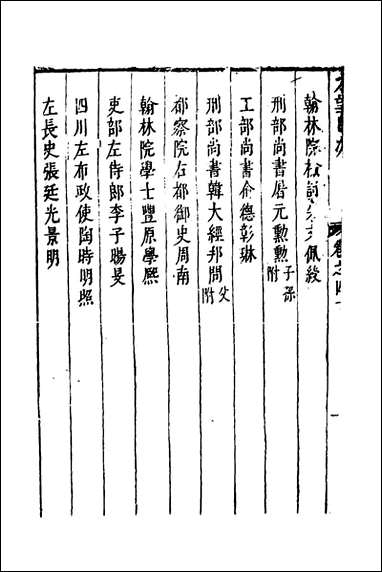 卷之四十
翰林院檢討佩紱
刑部尚書屠元勳勳子附
工部尚書俞德彰琳
刑部尚書韓大經邦問父附
都察院右都御史周南
翰林院學士豐原學熙
吏部左侍郎李子暘旻
四川左布政使陶時明照
左長史張廷光景明
一